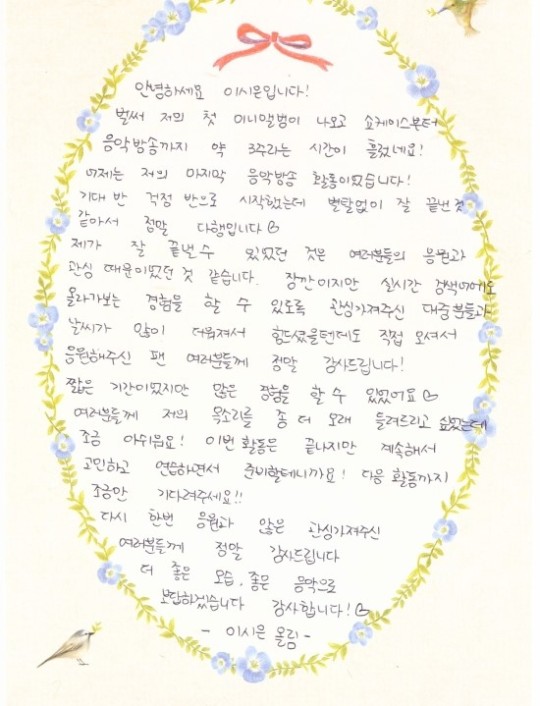 안녕하세요 이시은입니다!
벌써 저의 첫 미니앨범이 나오고 쇼케이스부터
음악방송까지 약 3주라는 시간이 흘렀네요!
어제는 저의 마지막 음악방송 활동이었습니다!
기대 반 걱정 반으로 시작했는데 별탈없이 잘 끝낸 것
같아서 정말 다행입니다♡
제가 잘 끝낼 수 있었던 것은 여러분들의 응원과
관심 때문이었던 것 같습니다. 잠깐이지만 실시간 검색어에도
올라가보는 경험을 할 수 있도록 관심가져주신 대중분들과
날씨가 많이 더워져서 힘드셨을텐데도 직접 오셔서
응원해주신 팬 여러분들께 정말 감사드립니다!
짧은 기간이었지만 많은 경험을 할 수 있었어요♡
여러분들께 저의 목소리를 좀 더 오래 들려드리고 싶었는데
조금 아쉬워요! 이번 활동은 끝나지만 계속해서
고민하고 연습하면서 준비할테니까요! 다음 활동까지
조금만 기다려주세요!!
다시 한번 응원과 많은 관심가져주신
여러분들께 정말 감사드립니다
더 좋은 모습, 좋은 음악으로
보답하겠습니다 감사합니다!♡
- 이시은 올림 -